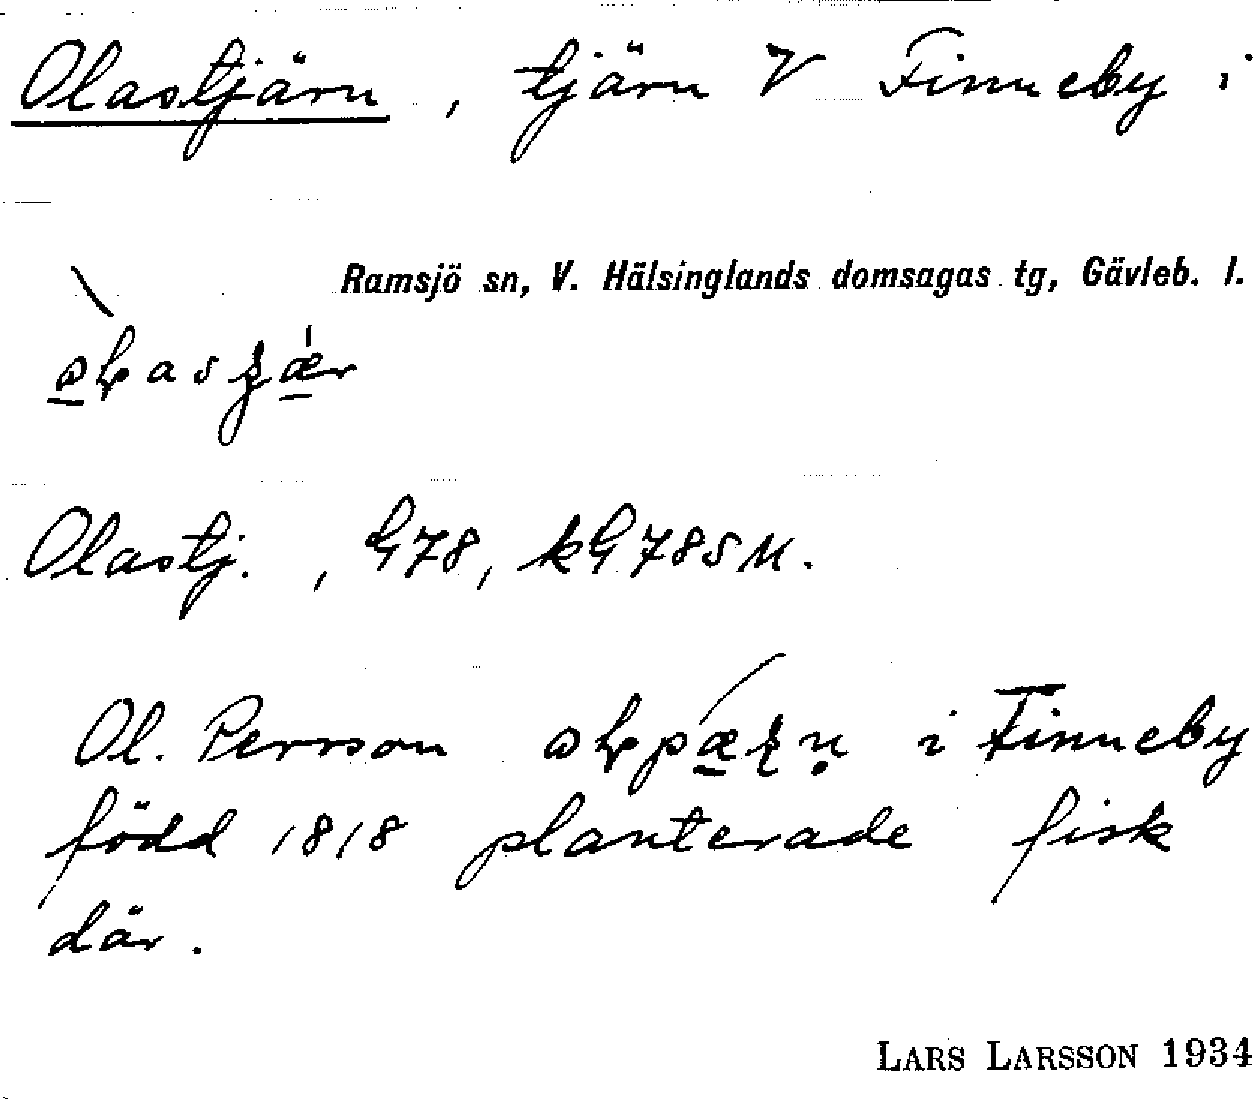 Olastjärn, tjärn V Finneby i
Ramsjö sn, V. Hälsinglands domsagas tg, Gävleb. l.
Olastj., G78, kG78SM.
Ol. Persson i Finneby
född 1818 planterade fisk
där.
LARS LARSSON 1934